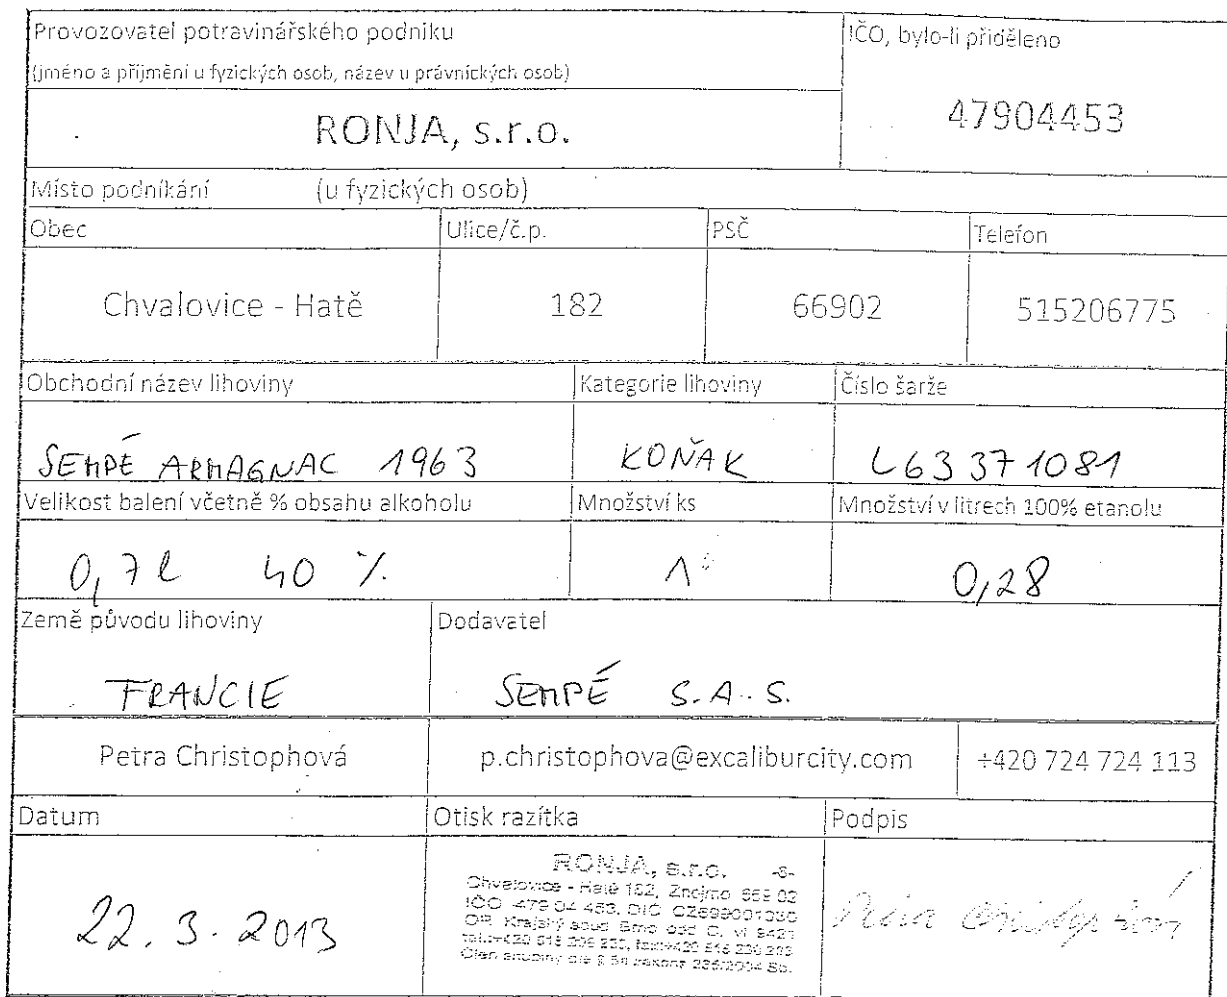 Provozovatel potravinářského podniku
(jméno a příjmení u fyzických osob, název u právnických osob)
IČO, bylo-li přiděleno
RONJA, s.r.o.
47904453
Místo podnikání (u fyzických osob)
Obec Ulice/č.p. PSČ Telefon
Chvalovice - Hatě 182 66902 515206775
Obchodní název lihoviny Kategorie lihoviny Číslo šarže
SEMPÉ ARMAGNAC 1963 KOŇAK L63 371081
Velikost balení včetně % obsahu alkoholu Množství ks Množství v litrech 100% etanolu
0,7 l 40 % 1 0,28
Země původu lihoviny Dodavatel
FRANCIE SEMPÉ S.A.S.
Petra Christophová p.christophova@excaliburcity.com +420 724 724 113
Datum Otisk razítka Podpis
22. 3. 2013
RONJA, s.r.o. -6-
Chvalovice - Hatě 182, Znojmo 669 02
IČO 479 04 453, DIČ
OR. Krajský soud Brno odd C, vl 9421
Člen skupiny dle § 5a zákona 235/2004 Sb.